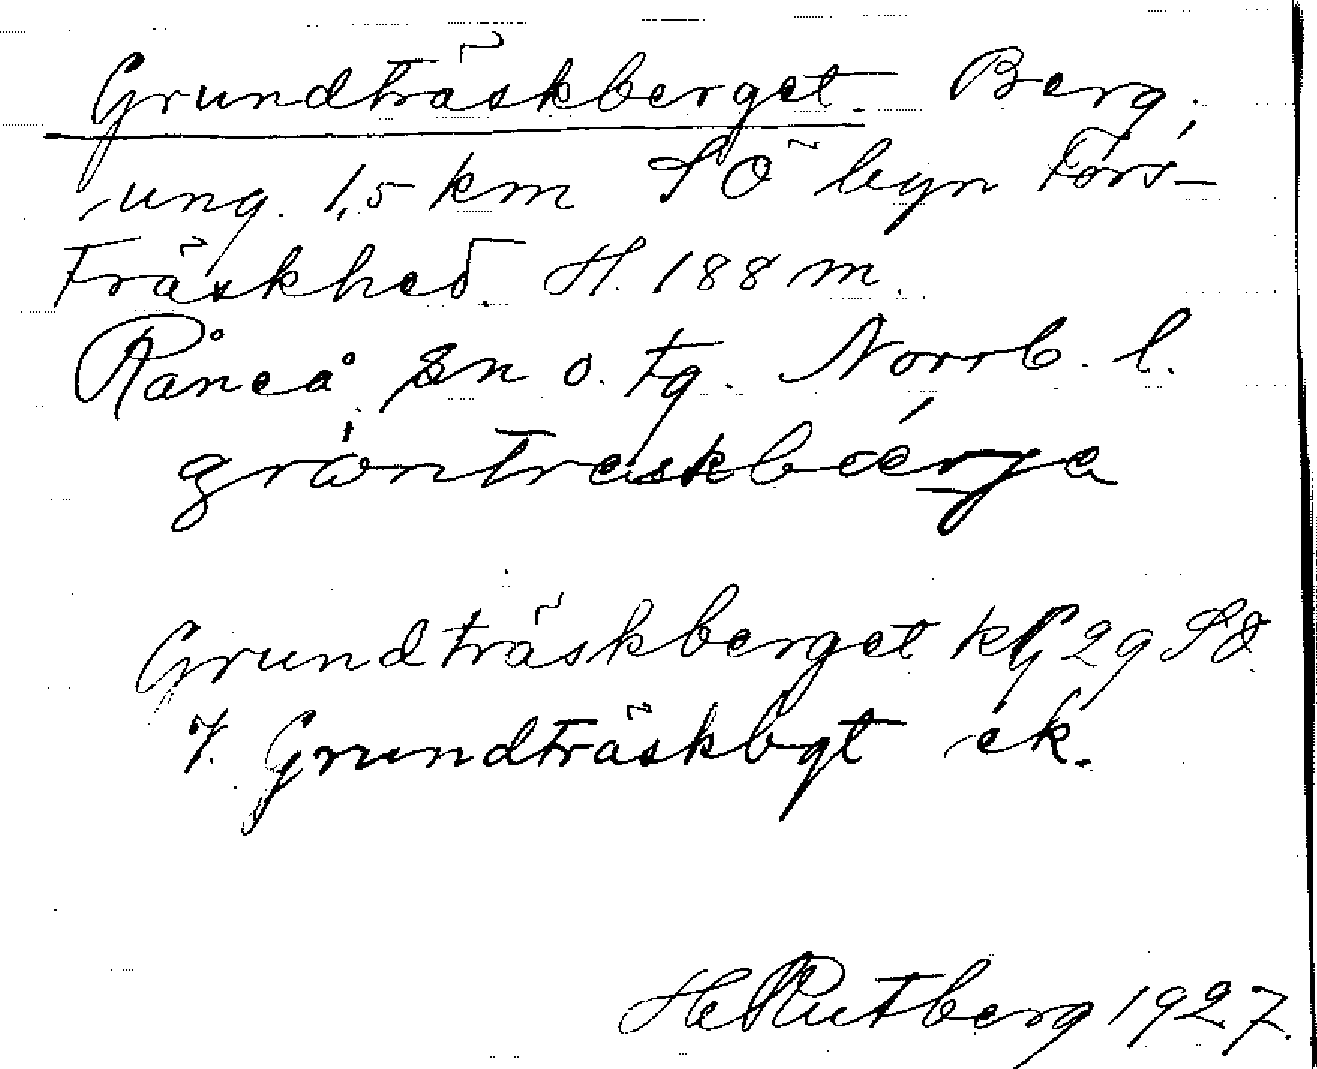 Grundträskberget. Berg,
ung. 1,5 km SÖ byn Fors-
träskhed. H. 188 m.
Råneå sn o. tg. Norrb. l.
Grundträskberget 29 SÖ.
7. Grundträskbgt ek.
H Rutberg 1927.